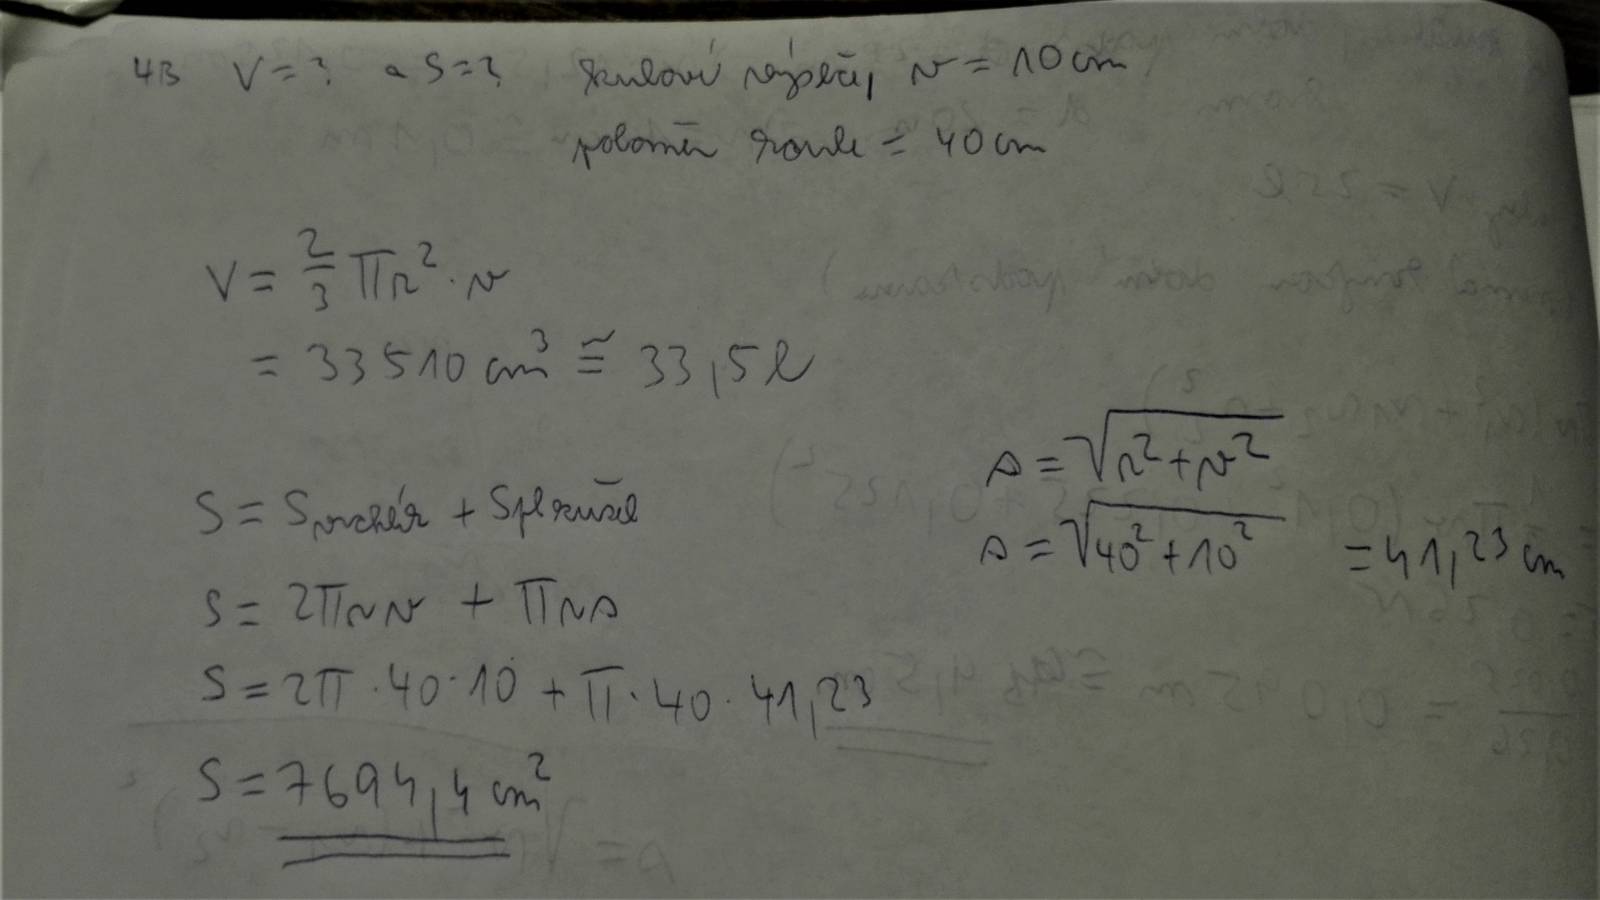 4B V = ? a S = ? kulová výseč, v = 10 cm
poloměr koule = 40 cm
V = 2/3 πr² · v
= 33510 cm³ ≅ 33,5 l
s = √r² + v²
s = √40² + 10² = 41,23 cm
S = Svrchlík + Splkužel
S = 2πrv + πrs
S = 2π · 40 · 10 + π · 40 · 41,23
S = 7694,4 cm²